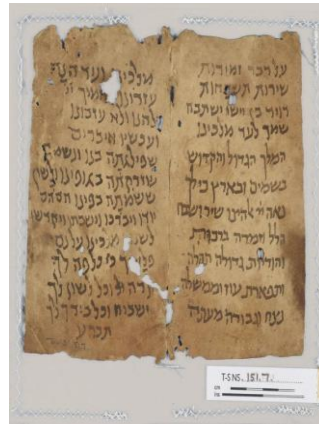 על דברי זמירות
שירות תשבחות
דויד בן ישי ישתבח
שמך לעד מלכינו
המלך הגדול והקדוש
בשמים ובארץ כי לך
נאה יי אלהינו שיר ושבח
הלל וזמרה ברכות
והודיות גדולה
ותפארת עוז וממשלה
נצח וגבורה מעתה
מלכינו ועד הנה
עזרונו
ולא עזבונו
איברים
שפילגתה בנו ונשמה
שזרקתה בגופינו ולשון
ששמתה בפינו הם הם
יודו ויברכו וישבחו ויקדשו
על שם
כי כל פה לך
יודה וכל לשון לך
ישבח וכל ברך לך
תכרע
T-S NS. 151.7